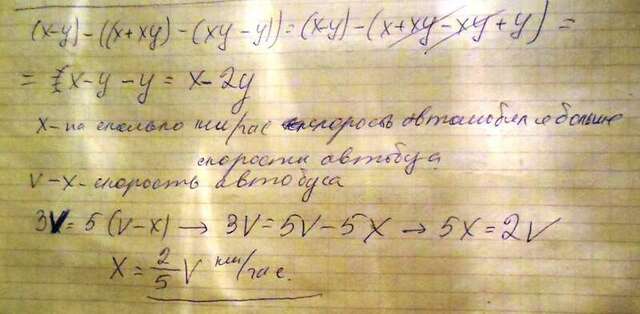 (x-y)-((x+xy)-(xy-y))=(x-y)-(x+xy-xy+y)=
= x-y-y=x-2y
x-на сколько км/час скорость автомобиля больше
скорости автобуса
v-x-скорость автобуса
3v=5(v-x)→3v=5v-5x→5x=2v
x=2/5 v км/час.